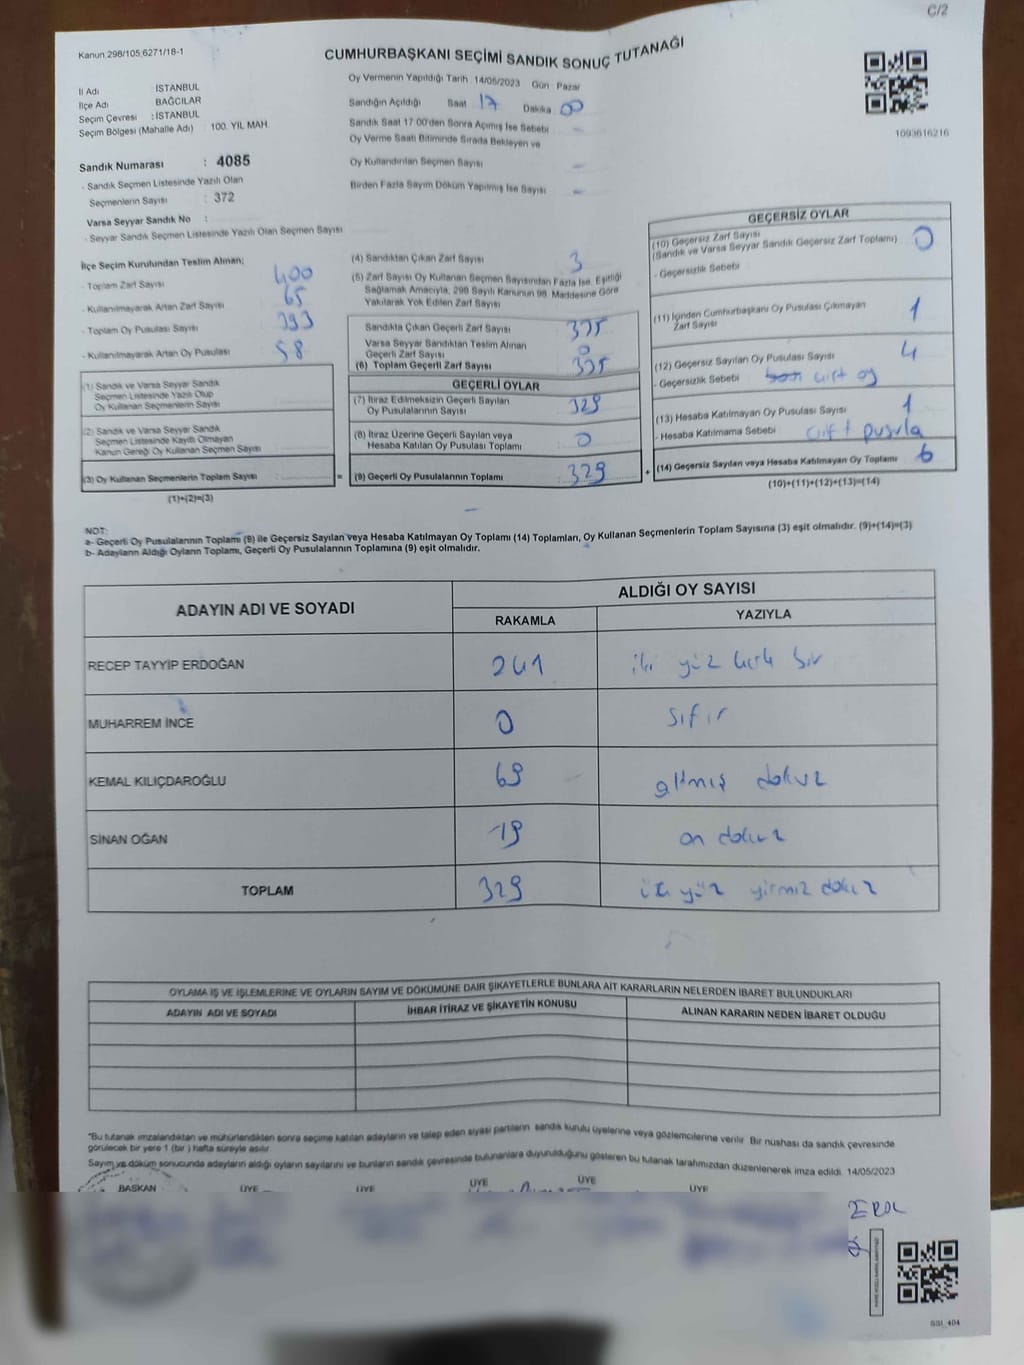 C/2
Kanun 298/105,6271/18-1
CUMHURBAŞKANI SEÇİMİ SANDIK SONUÇ TUTANAĞI
İl Adı İSTANBUL
İlçe Adı BAĞCILAR
Seçim Çevresi : İSTANBUL
Seçim Bölgesi (Mahalle Adı) 100. YIL MAH.
Sandık Numarası : 4085
- Sandık Seçmen Listesinde Yazılı Olan
Seçmenlerin Sayısı : 372
Varsa Seyyar Sandık No :
- Seyyar Sandık Seçmen Listesinde Yazılı Olan Seçmen Sayısı
Oy Vermenin Yapıldığı Tarih : 14/05/2023 Gün : Pazar
Sandığın Açıldığı Saat 17 Dakika 00
Sandık Saat 17:00'den Sonra Açılmış İse Sebebi -
Oy Verme Saati Bitiminde Sırada Bekleyen ve
Oy Kullandırılan Seçmen Sayısı -
Birden Fazla Sayım Döküm Yapılmış İse Sayısı -
1093616216
İlçe Seçim Kurulundan Teslim Alınan;
- Toplam Zarf Sayısı 400
- Kullanılmayarak Artan Zarf Sayısı 65
- Toplam Oy Pusulası Sayısı 393
- Kullanılmayarak Artan Oy Pusulası 58
(1) Sandık ve Varsa Seyyar Sandık
Seçmen Listesinde Yazılı Olup
Oy Kullanan Seçmenlerin Sayısı
(2) Sandık ve Varsa Seyyar Sandık
Seçmen Listesinde Kayıtlı Olmayan
Kanun Gereği Oy Kullanan Seçmen Sayısı
(3) Oy Kullanan Seçmenlerin Toplam Sayısı =
(1)+(2)=(3)
(4) Sandıktan Çıkan Zarf Sayısı
(5) Zarf Sayısı Oy Kullanan Seçmen Sayısından Fazla İse, Eşitliği
Sağlamak Amacıyla, 298 Sayılı Kanunun 98. Maddesine Göre
Yakılarak Yok Edilen Zarf Sayısı
Sandıkta Çıkan Geçerli Zarf Sayısı 335
Varsa Seyyar Sandıktan Teslim Alınan
Geçerli Zarf Sayısı 0
(6) Toplam Geçerli Zarf Sayısı 335
GEÇERLİ OYLAR
(7) İtiraz Edilmeksizin Geçerli Sayılan
Oy Pusulalarının Sayısı 329
(8) İtiraz Üzerine Geçerli Sayılan veya
Hesaba Katılan Oy Pusulası Toplamı 0
(9) Geçerli Oy Pusulalarının Toplamı 329 +
GEÇERSİZ OYLAR
(10) Geçersiz Zarf Sayısı
(Sandık ve Varsa Seyyar Sandık Geçersiz Zarf Toplamı) 0
- Geçersizlik Sebebi
(11) İçinden Cumhurbaşkanı Oy Pusulası Çıkmayan
Zarf Sayısı 1
(12) Geçersiz Sayılan Oy Pusulası Sayısı 4
- Geçersizlik Sebebi çift oy
(13) Hesaba Katılmayan Oy Pusulası Sayısı 1
- Hesaba Katılmama Sebebi çift pusula
(14) Geçersiz Sayılan veya Hesaba Katılmayan Oy Toplamı 6
(10)+(11)+(12)+(13)=(14)
NOT:
a- Geçerli Oy Pusulalarının Toplamı (9) ile Geçersiz Sayılan veya Hesaba Katılmayan Oy Toplamı (14) Toplamları, Oy Kullanan Seçmenlerin Toplam Sayısına (3) eşit olmalıdır. (9)+(14)=(3)
b- Adayların Aldığı Oyların Toplamı, Geçerli Oy Pusulalarının Toplamına (9) eşit olmalıdır.
ADAYIN ADI VE SOYADI ALDIĞI OY SAYISI
RAKAMLA YAZIYLA
RECEP TAYYİP ERDOĞAN 241 iki yüz kırk bir
MUHARREM İNCE 0 sıfır
KEMAL KILIÇDAROĞLU 69 altmış dokuz
SİNAN OĞAN 19 on dokuz
TOPLAM 329 üç yüz yirmi dokuz
OYLAMA İŞ VE İŞLEMLERİNE VE OYLARIN SAYIM VE DÖKÜMÜNE DAİR ŞİKAYETLERLE BUNLARA AİT KARARLARIN NELERDEN İBARET BULUNDUKLARI
ADAYIN ADI VE SOYADI İHBAR İTİRAZ VE ŞİKAYETİN KONUSU ALINAN KARARIN NEDEN İBARET OLDUĞU
"Bu tutanak imzalandıktan ve mühürlendikten sonra seçime katılan adayların ve talep eden siyasi partilerin sandık kurulu üyelerine veya gözlemcilerine verilir. Bir nüshası da sandık çevresinde
görülecek bir yere 1 (bir ) hafta süreyle asılır.
Sayım ve döküm sonucunda adayların aldığı oyların sayılarını ve bunların sandık çevresinde bulunanlara duyurulduğunu gösteren bu tutanak tarafımızdan düzenlenerek imza edildi. 14/05/2023
BAŞKAN ÜYE ÜYE ÜYE ÜYE ÜYE
EROL
SSI_404